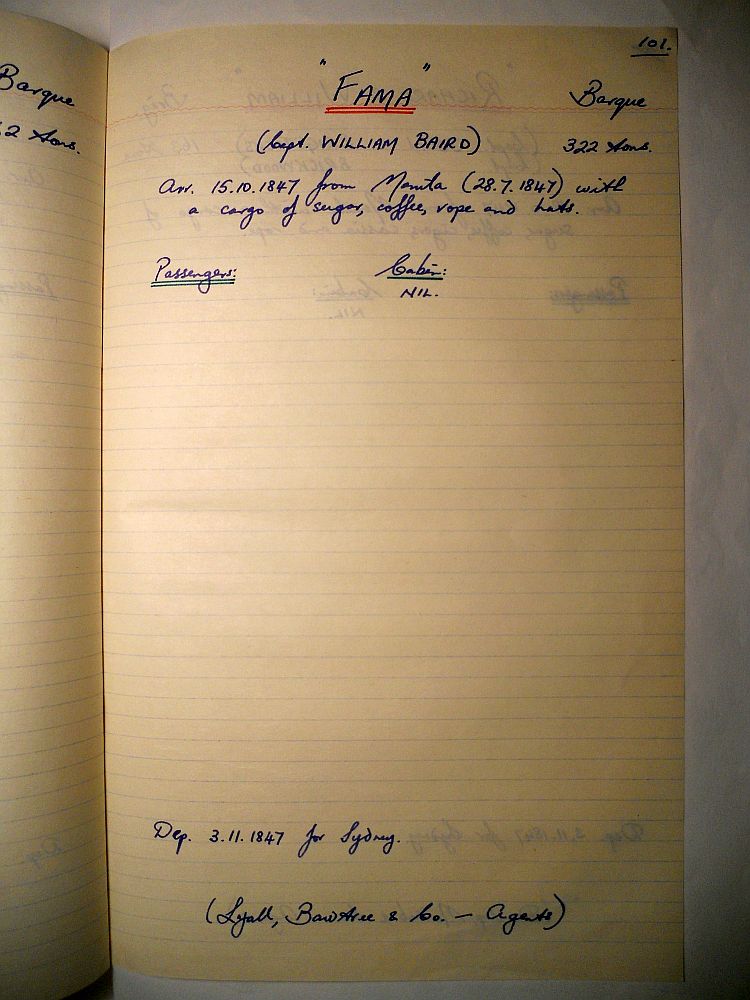 101.
Barque
2 tons.
"FAMA"
Barque
(Capt. WILLIAM BAIRD)
322 tons.
Arr. 15.10.1847 from Manila (28.7.1847) with
a cargo of sugar, coffee, rope and hats.
Passengers:
Cabin:
NIL.
Dep. 3.11.1847 for Sydney.
(Lyall, Bawtree & Co. — Agents)